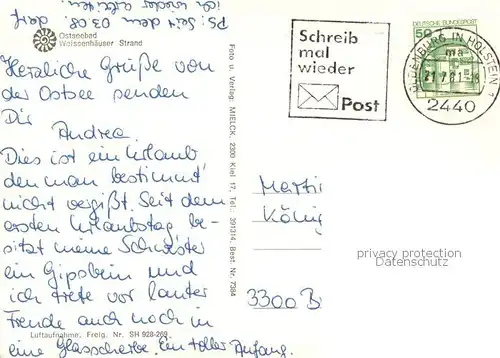 PS: Seit dem 03.08. darf
ich wieder arbeiten.
Ostseebad
Weissenhäuser Strand
Herzliche Grüße von
der Ostsee senden
Dir
Andrea.
Dies ist ein Urlaub,
den man bestimmt
nicht vergißt. Seit dem
ersten Urlaubstag be-
sitzt meine Schwester
ein Gipsbein und
ich trete vor lauter
Freude auch noch in
eine Glasscherbe. Ein toller Anfang.
Luftaufnahme, Freig. Nr. SH 928-269
Foto u. Verlag: MIELCK, 2300 Kiel 17, Tel. 391314, Best. Nr. 7384
Schreib
mal
wieder
Post
DEUTSCHE BUNDESPOST
50
OLDENBURG IN HOLSTEIN 1
ma
2440
Martin
König
3300 B
privacy protection
Datenschutz